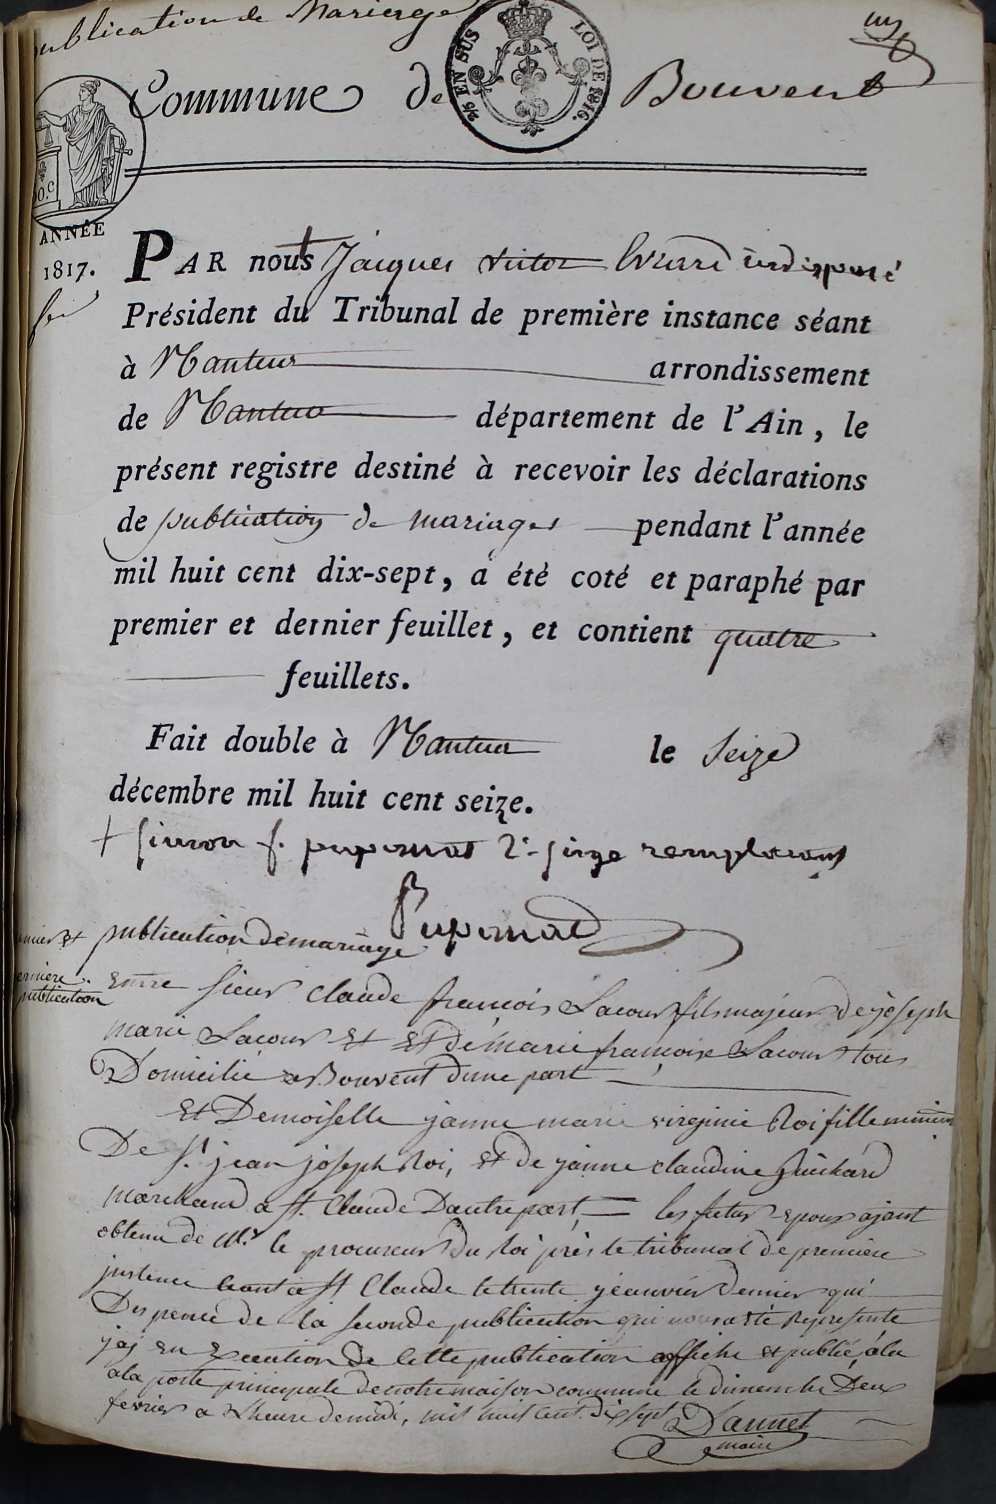 publication de Mariage
Commune de Bouvent
2/5 EN SUS LOI DE 1816.
ANNÉE
1817.
PAR nous Jacques Victor indisposé
Président du Tribunal de première instance séant
à Nantua arrondissement
de Nantua département de l'Ain, le
présent registre destiné à recevoir les déclarations
de publication de mariages pendant l'année
mil huit cent dix-sept, a été coté et paraphé par
premier et dernier feuillet, et contient quatre
feuillets.
Fait double à Nantua le Seize
décembre mil huit cent seize.
+ simon f. 2e juge remplacant
publication de mariage
publication
entre sieur claude francois Lacour fils majeur de joseph
marie Lacour Et Et de marie francoise Lacour tous
Domicilié a Bouvent dune part
Et Demoiselle janne marie virginie Roi fille mineur
De Sr jean joseph Roi, Et de janne claudine Guichard
marchand a St Claude Dautre part, les futur epoux ajant
obtenu de Mr le procureur du Roi près le tribunal de première
justence a St Claude le trente jeanvier dernier qui
Dispence de la seconde publication qui nous a été représenté
j'ai en Execution de Cette publication affiche et publié, à la
a la porte principale de notre maison commune le dimenche Deux
fevrier a Lheure de midi, mil huit cent dix sept
maire